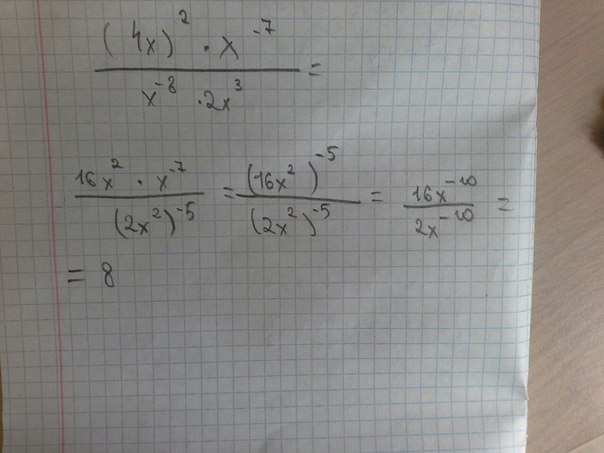 (4x)² · x⁻⁷
x⁻⁸ · 2x³ =
16x² · x⁻⁷ / (2x²)⁻⁵ = (16x²)⁻⁵ / (2x²)⁻⁵ = 16x⁻¹⁰ / 2x⁻¹⁰ =
= 8